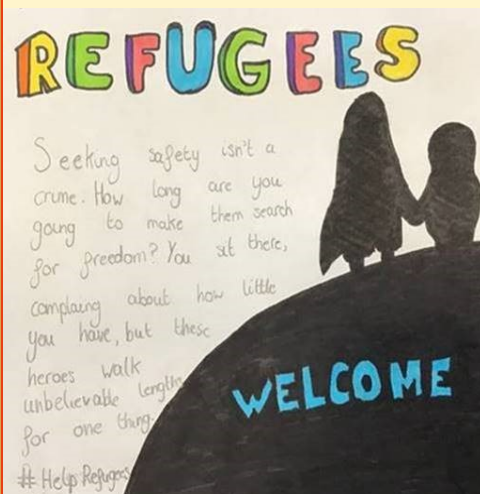 REFUGEES
Seeking safety isn't a
crime. How long are you
going to make them search
for freedom? You sit there,
complaing about how little
you have, but these
heroes walk
unbelievable lengths
for one thing.
# Help Refugees
WELCOME